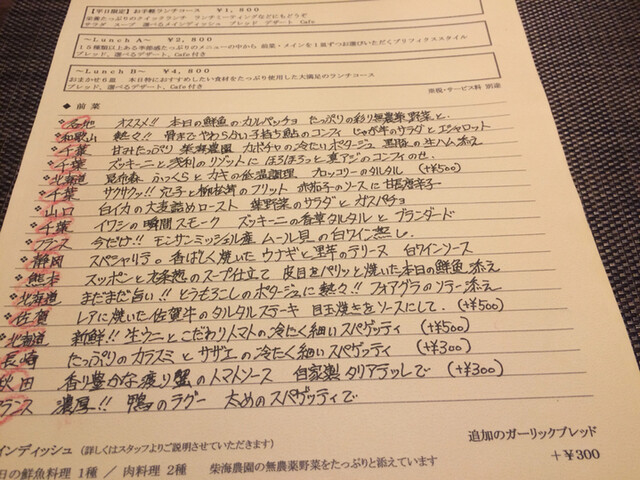 【平日限定】お手軽ランチコース ￥1,800
栄養たっぷりのクイックランチ ランチミーティングなどにもどうぞ
サラダ スープ 選べるメインディッシュ ブレッド デザート Cafe
～Lunch A～ ￥2,800
15種類以上ある季節感たっぷりのメニューの中から 前菜・メインを1皿ずつお選びいただくプリフィクススタイル
ブレッド、選べるデザート、Cafe付き
～Lunch B～ ￥4,800
おまかせ6皿 本日特におすすめしたい食材をたっぷり使用した大満足のランチコース
ブレッド、選べるデザート、Cafe付き ※税・サービス料 別途
◆ 前菜
各地 オススメ!! 本日の鮮魚のカルパッチョ たっぷりの彩り無農薬野菜と。
和歌山 熱々!! 骨までやわらかい子持ち鮎のコンフィ じゃが芋のサラダとエシャロット
千葉 甘みたっぷり 柴海農園 カボチャの冷たいポタージュ 黒豚の生ハム添え
千葉 ズッキーニと浅利のリゾットに ほろほろっと真アジのコンフィのせ。
北海道 昆布森 ふっくらとカキの低温調理 ブロッコリのタルタル (+¥500)
千葉 サクサクッ!! 穴子と のフリット 赤茄子のソースに甘長唐辛子
山口 白イカの大麦詰めロースト 葉野菜のサラダとガスパチョ
千葉 イワシの瞬間スモーク ズッキーニの香草タルタルと ブランダード
フランス 今だけ!! モンサンミッシェル産 ムール貝の白ワイン蒸し。
静岡 スペシャリテ。香ばしく焼いた ウナギと里芋のテリーヌ 白ワインソース
熊本 スッポンと九条葱のスープ仕立て 皮目をパリッと焼いた本日の鮮魚 添え
北海道 まだまだ旨い!! とうもろこしのポタージュに熱々!! フォアグラのソテー添え
佐賀 レアに焼いた佐賀牛のタルタルステーキ 目玉焼きをソースにして。(+¥500)
北海道 新鮮!! 生ウニとこだわりトマトの冷たく細いスパゲッティ (+¥500)
長崎 たっぷりのカラスミとサザエの冷たく細いスパゲッティ (+¥300)
秋田 香り豊かな渡り蟹のトマトソース 自家製タリアテッレで (+¥300)
フランス 濃厚!! 鴨のラグー 太めのスパゲッティで
インディッシュ (詳しくはスタッフよりご説明させていただきます) 追加のガーリックブレッド
日の鮮魚料理 1種 / 肉料理 2種 柴海農園の無農薬野菜をたっぷりと添えています +￥300